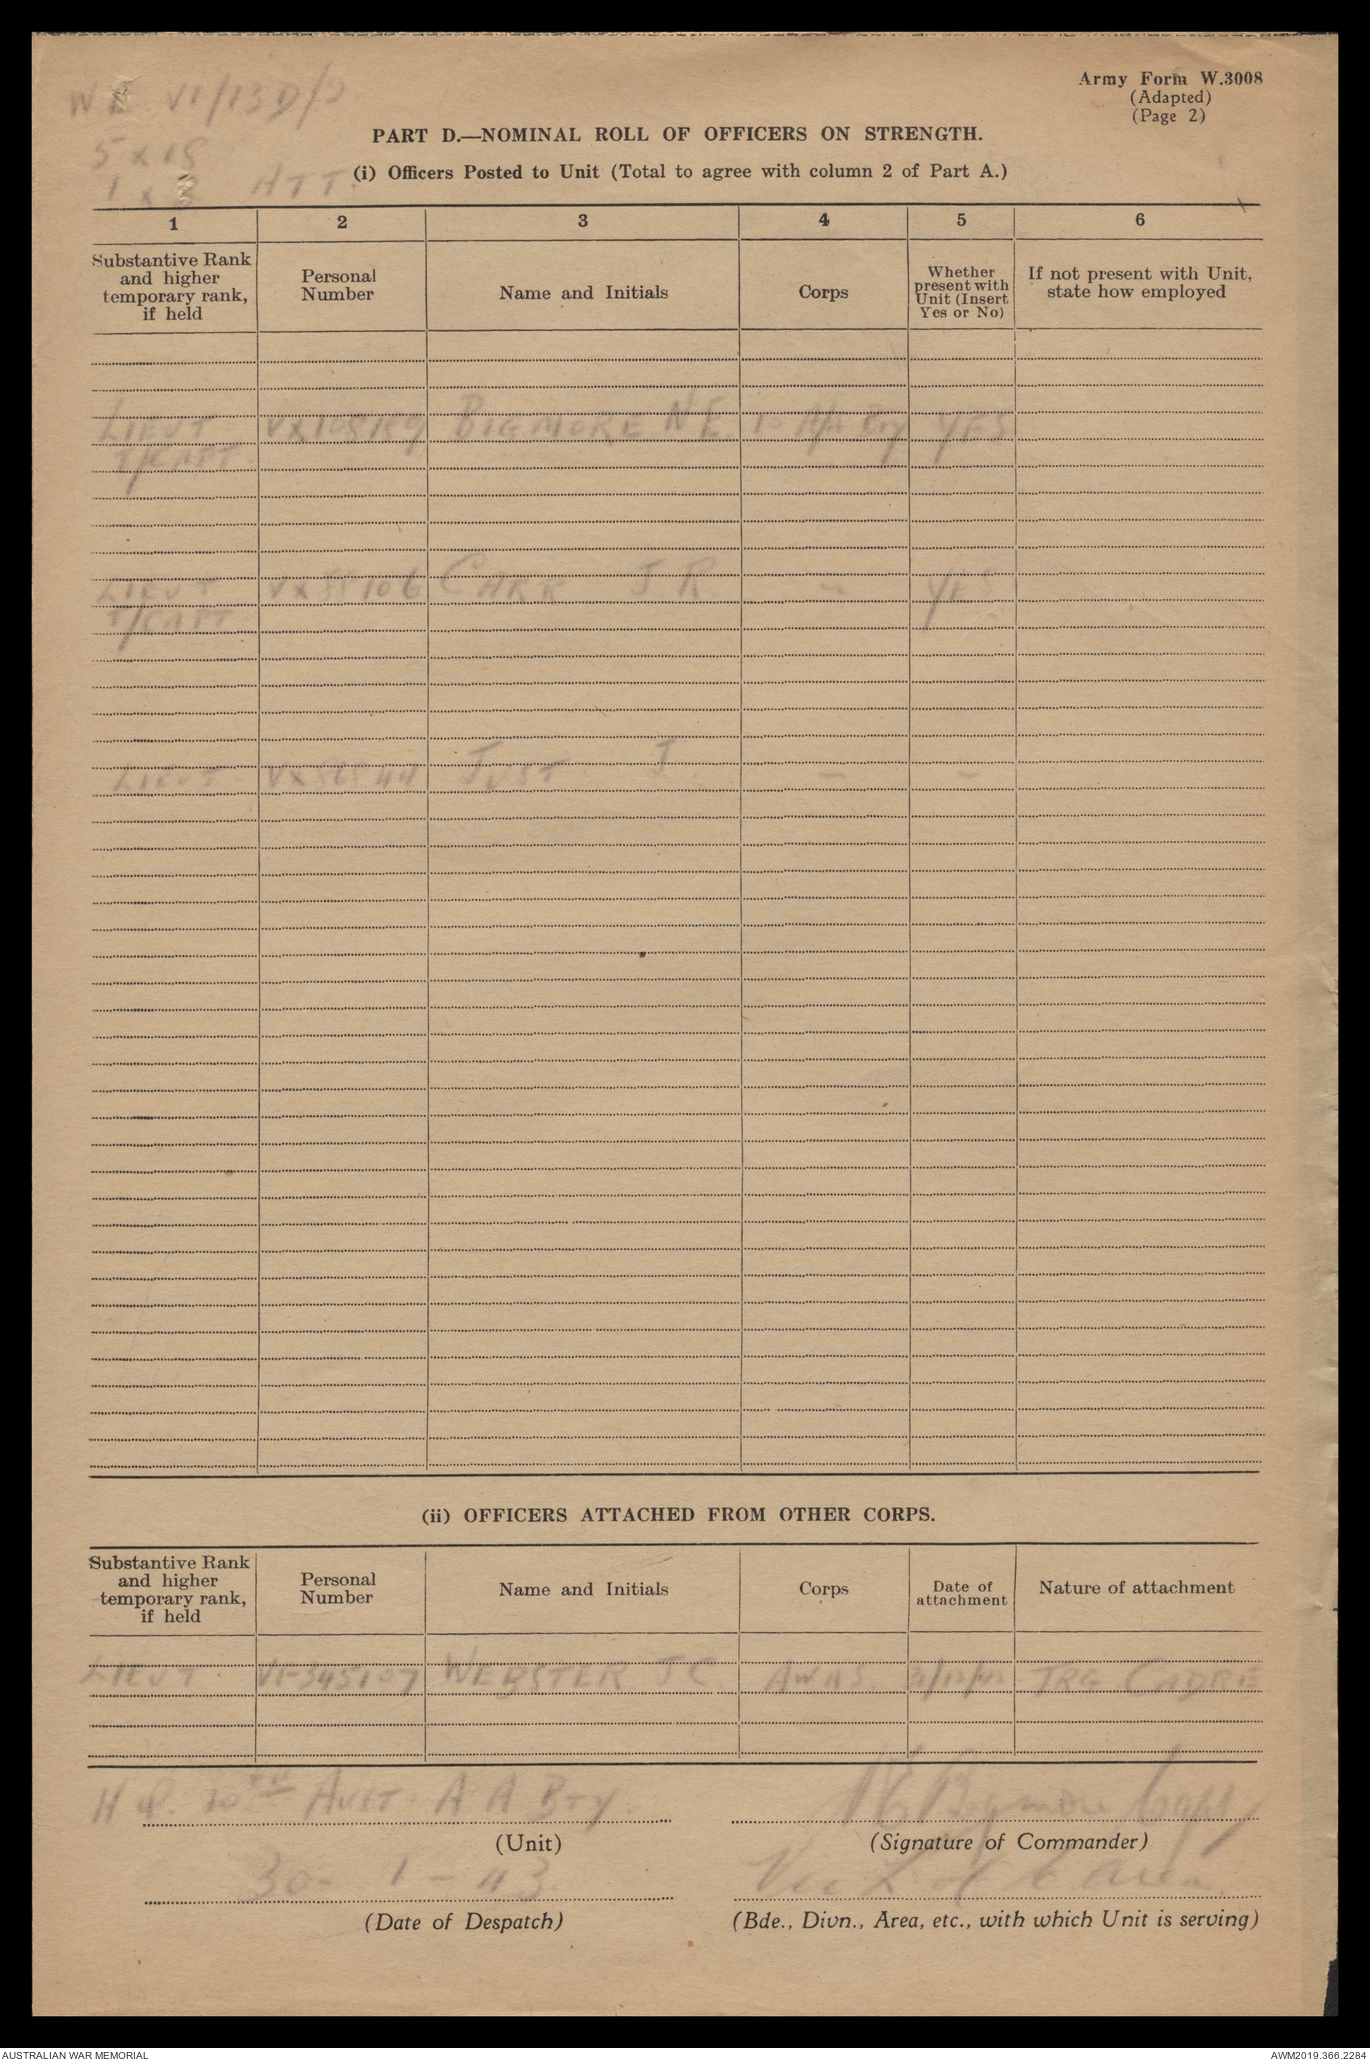 W E VI/13D/2
Army Form W.3008
(Adapted)
(Page 2)
PART D.—NOMINAL ROLL OF OFFICERS ON STRENGTH.
5 x 15
1 x ATT.
(i) Officers Posted to Unit (Total to agree with column 2 of Part A.)
1 2 3 4 5 6
Substantive Rank and higher temporary rank, if held
Personal Number
Name and Initials
Corps
Whether present with Unit (Insert Yes or No)
If not present with Unit, state how employed
LIEUT VX108189 BIGMORE N E 10 A/A Bty YES
T/CAPT.
LIEUT CARR J. R. – YES
T/CAPT
LIEUT JUST J – –
(ii) OFFICERS ATTACHED FROM OTHER CORPS.
Substantive Rank and higher temporary rank, if held
Personal Number
Name and Initials
Corps
Date of attachment
Nature of attachment
LIEUT. VF345107 WEBSTER J C AWAS TRG CADRE
H Q. 10TH AUST. A A Bty.
N E Bigmore Capt
(Unit)
(Signature of Commander)
30 - 1 - 43
Vic L of C Area.
(Date of Despatch)
(Bde., Divn., Area, etc., with which Unit is serving)
AUSTRALIAN WAR MEMORIAL
AWM2019.366.2284